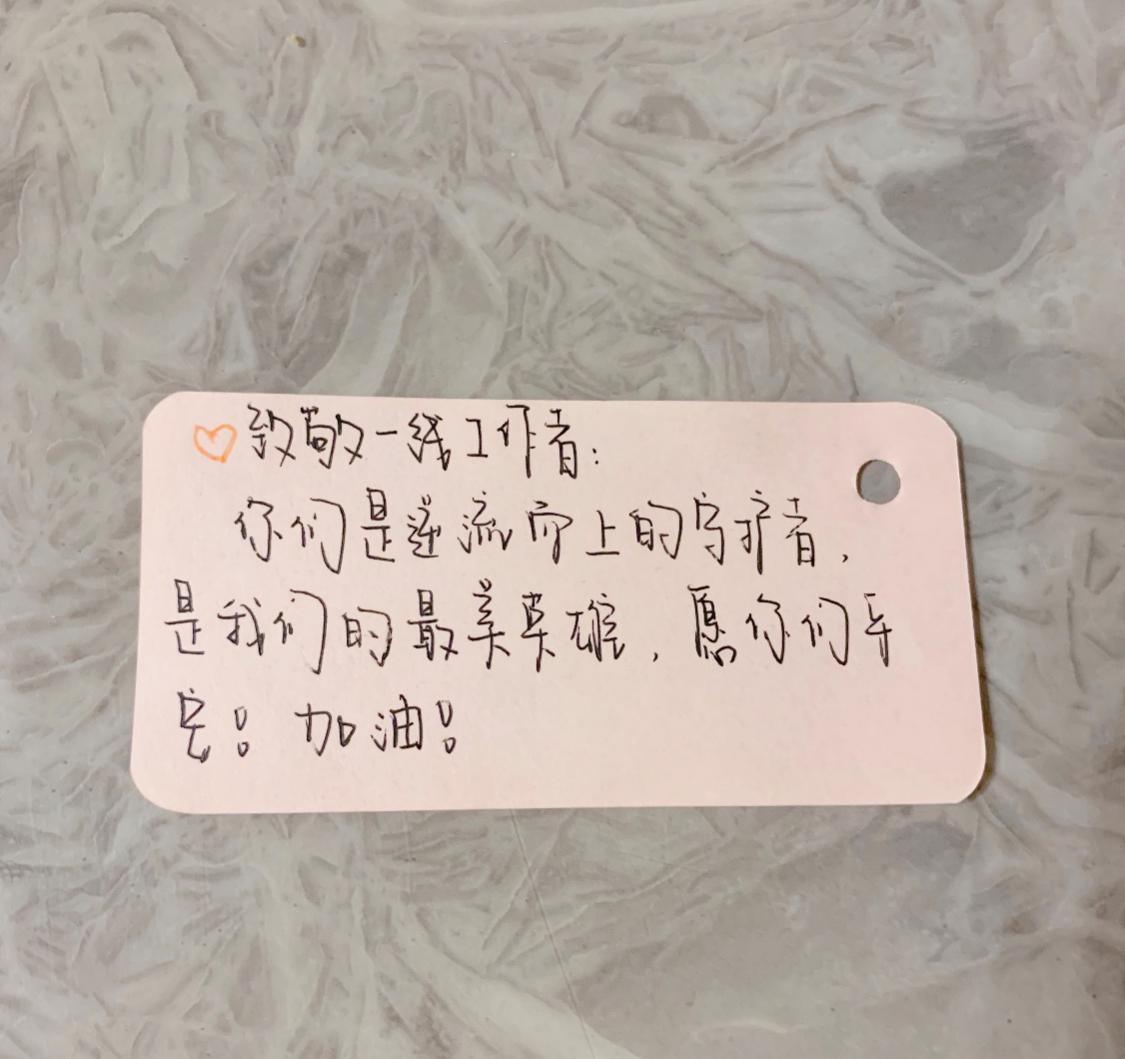 ♡致敬一线工作者:
你们是逆流而上的守护者,
是我们的最美英雄,愿你们平
安!加油!